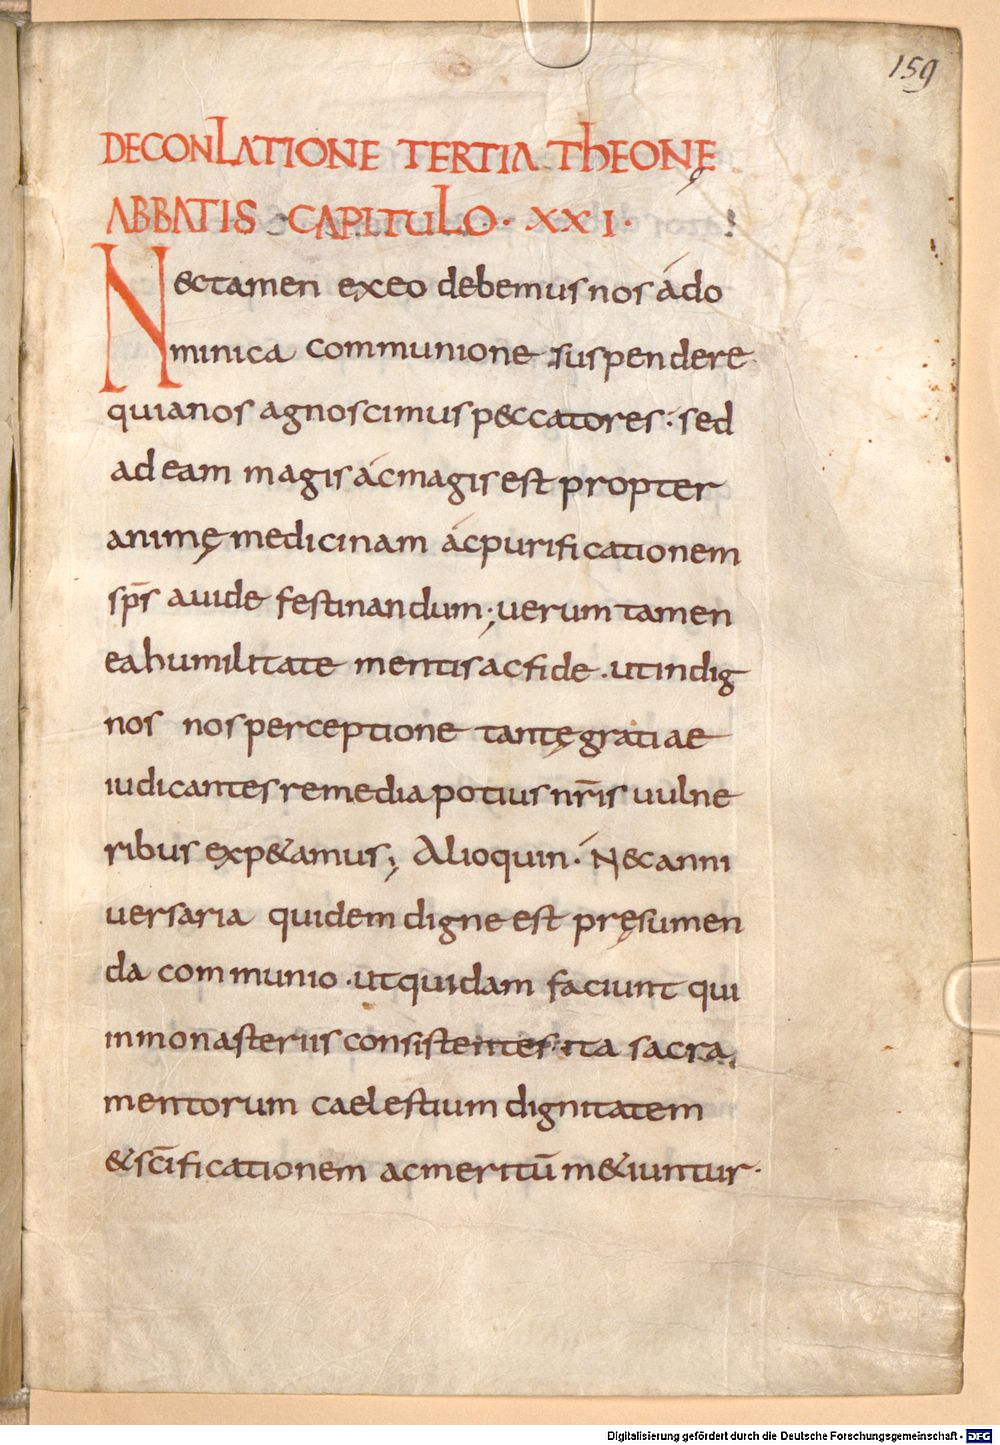 159
DECONLATIONE TERTIA THEONE
ABBATIS CAPITULO · XXI ·
N&ctamen exeo debemus nos ádo
minica communione suspendere
quia nos agnoscimus p&ccatores · sed
ad eam magis ácmagis est propter
animę medicinam ác purificationem
sp̄s auide festinandum; uerum tamen
ea humilitate mentis ac fide · ut indig
nos nos perceptione tantę gratiae
iudicantes remedia potius nr̄is uulne
ribus exp&amus; Alioquin · N&c anni
uersaria quidem digne est pręsumen
da communio · ut quidam faciunt qui
in monasteriis consistentes · ita sacra
mentorum caelestium dignitatem
& sc̄ificationem ac meritū m&iuntur ·
Digitalisierung gefördert durch die Deutsche Forschungsgemeinschaft - DFG